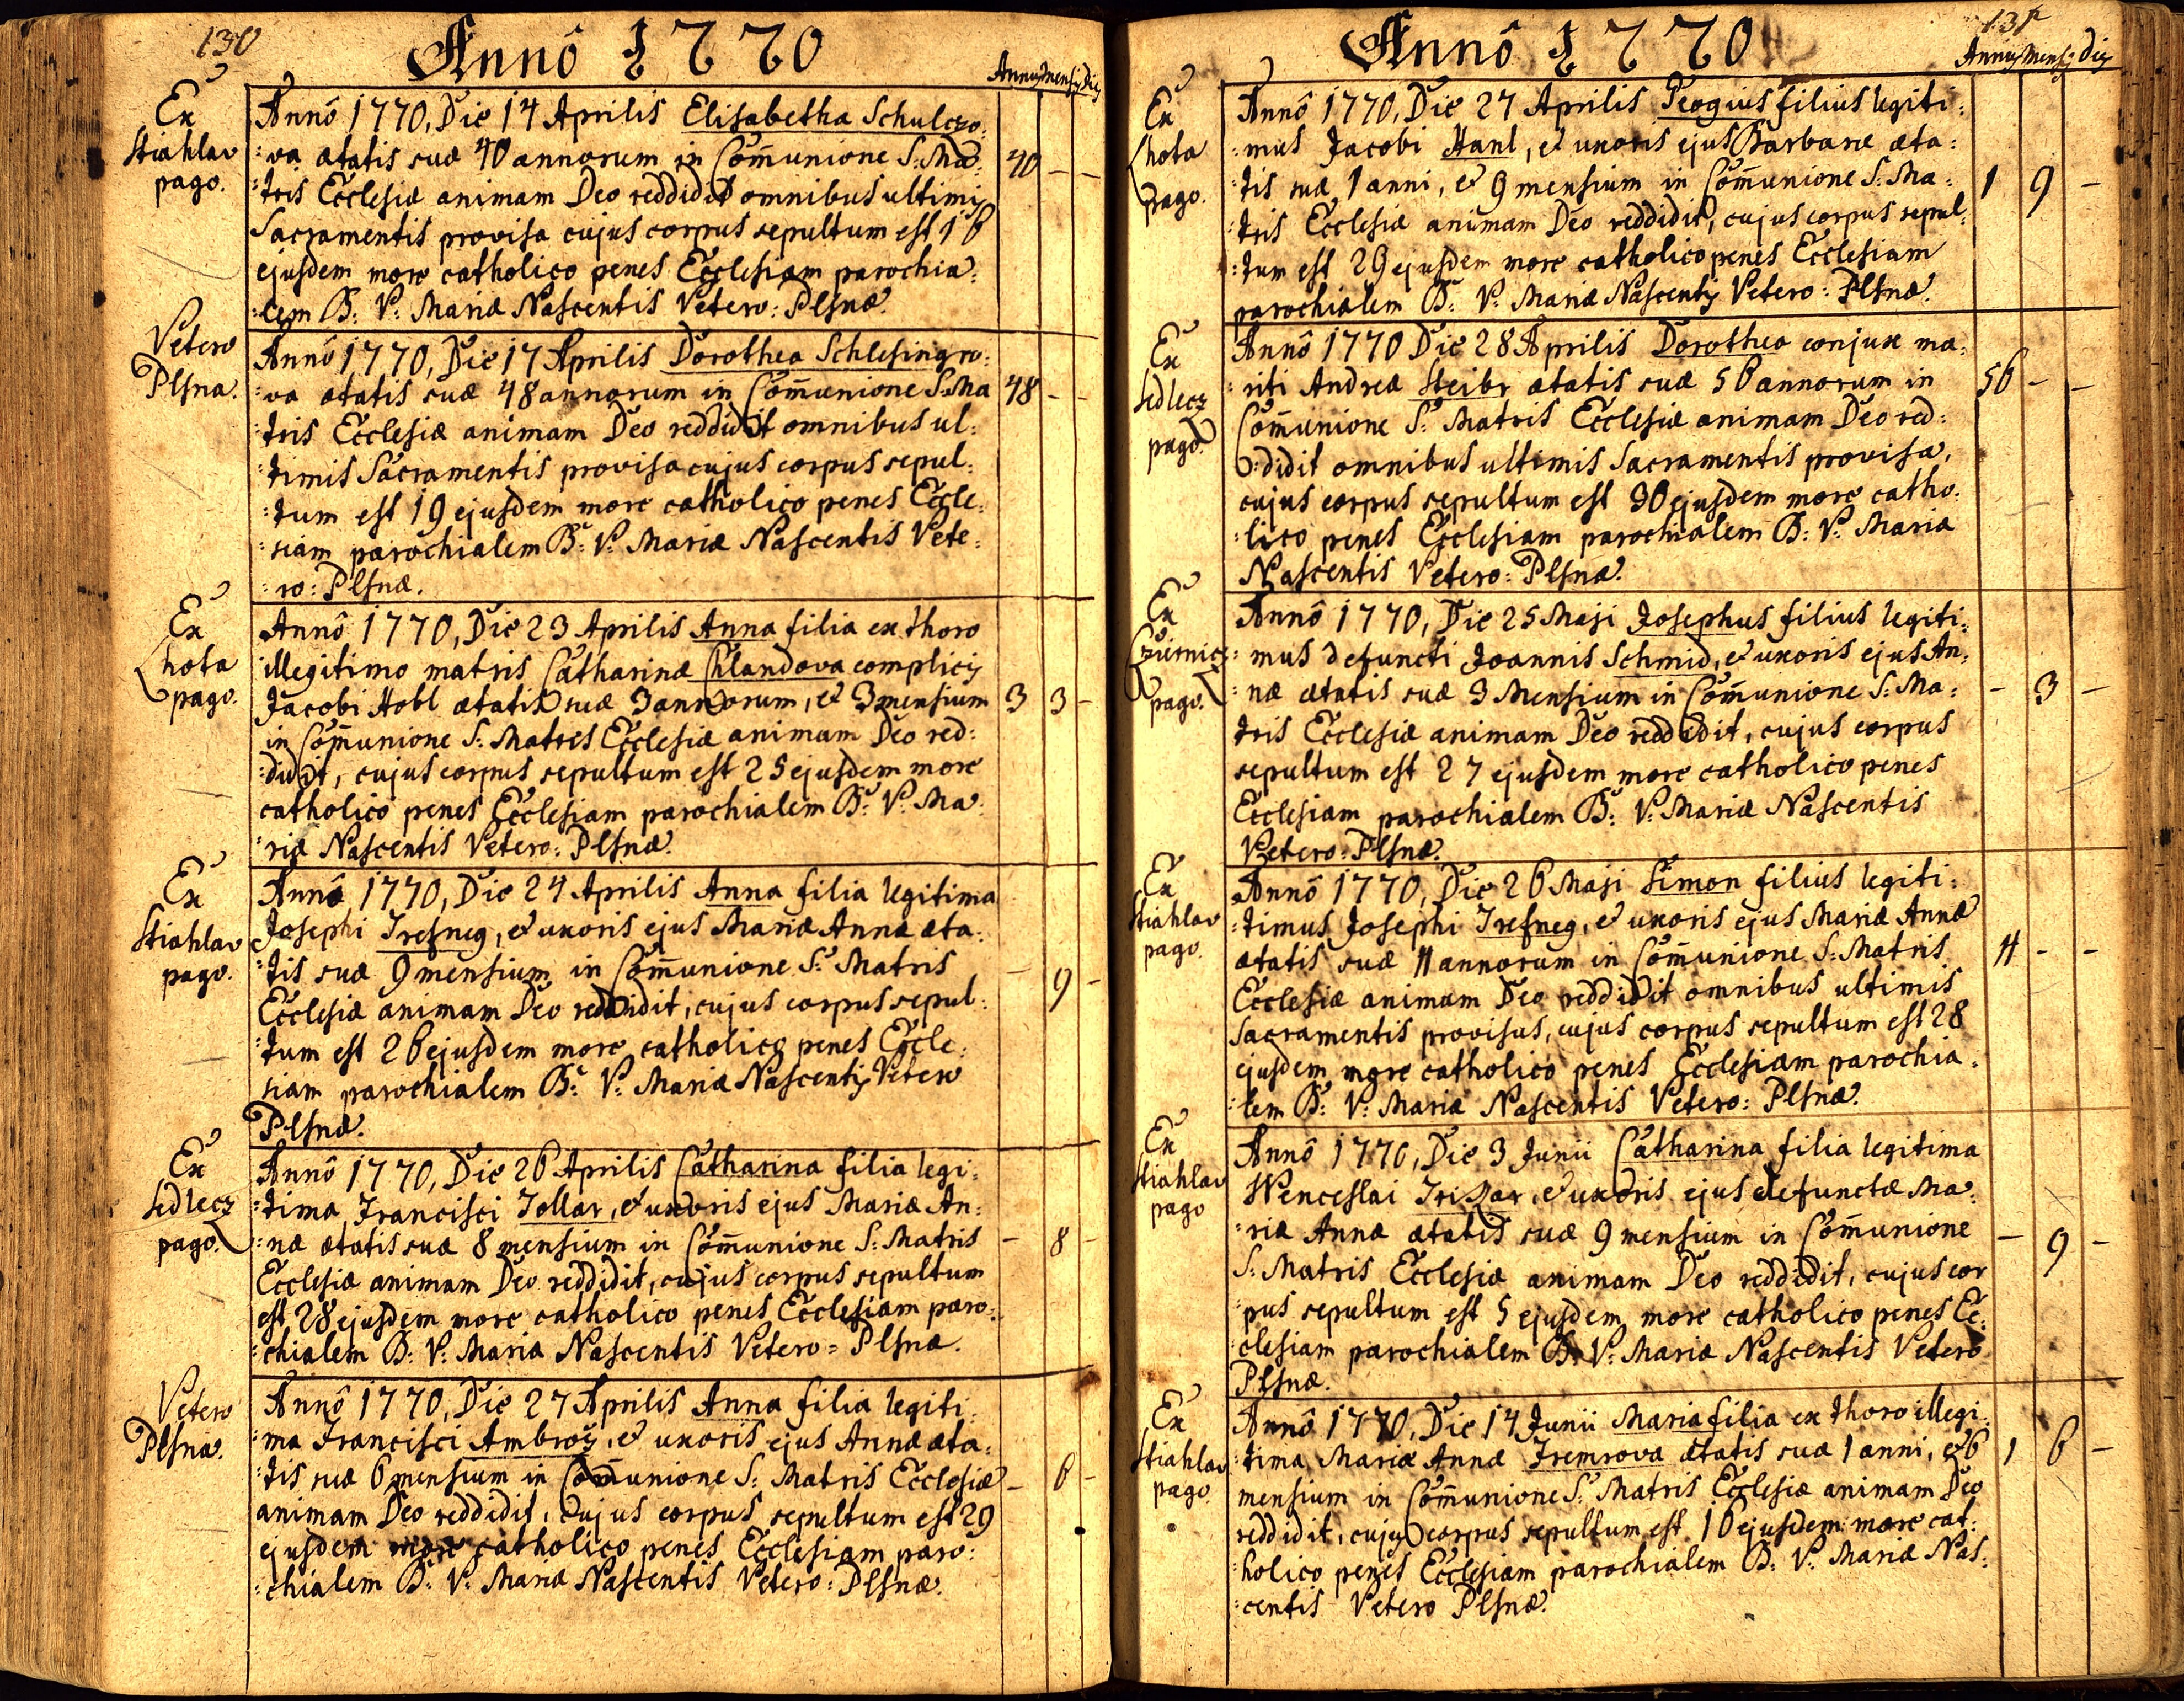 130
Annô 1770
Annus Mensis Dies
Ex
Stiahlav
pago.
Annô 1770, Die 14 Aprilis Elisabetha Schulczo:
:va ætatis suæ 40 annorum in Com̄unione S: Ma:
:tris Ecclesiæ animam Deo reddidit omnibus ultimis
Sacramentis provisa cujus corpus sepultum est 16
ejusdem more catholico penes Ecclesiam parochia:
:lem B: V: Mariæ Nascentis Vetero: Plsnæ.
40 - -
Vetero
Plsna.
Annô 1770, Die 17 Aprilis Dorothea Schlesingro:
:va ætatis suæ 48 annorum in Com̄unione S: Ma
:tris Ecclesiæ animam Deo reddidit omnibus ul:
:timis Sacramentis provisa cujus corpus sepul:
:tum est 19 ejusdem more catholico penes Eccle:
:siam parochialem B: V: Mariæ Nascentis Vete:
:ro: Plsnæ.
48 - -
Ex
Lhota
pago.
Annô 1770, Die 23 Aprilis Anna filia ex thoro
illegitimo matris Catharinæ Chlandova complicis
Jacobi Hobl ætatis suæ 3 annorum, et 3 mensium
in Com̄unione S: Matris Ecclesiæ animam Deo red:
:didit, cujus corpus sepultum est 25 ejusdem more
catholico penes Ecclesiam parochialem B: V: Ma:
:riæ Nascentis Vetero: Plsnæ.
3 3 -
Ex
Stiahlav
pago.
Annô 1770, Die 24 Aprilis Anna filia legitima
Josephi Trefneg, et uxoris ejus Mariæ Annæ æta:
:tis suæ 9 mensium in Com̄unione S: Matris
Ecclesiæ animam Deo reddidit, cujus corpus sepul:
:tum est 26 ejusdem more catholico penes Eccle:
:siam parochialem B: V: Mariæ Nascentis Vetero
Plsnæ.
- 9 -
Ex
Sedlecz
pago.
Annô 1770, Die 26 Aprilis Catharina filia legi:
:tima Francisci Tollar, et uxoris ejus Mariæ An:
:næ ætatis suæ 8 mensium in Com̄unione S: Matris
Ecclesiæ animam Deo reddidit, cujus corpus sepultum
est 28 ejusdem more catholico penes Ecclesiam paro:
:chialem B: V: Mariæ Nascentis Vetero = Plsnæ.
- 8 -
Vetero
Plsna.
Annô 1770, Die 27 Aprilis Anna filia legiti:
:ma Francisci Ambroz, et uxoris ejus Annæ æta:
:tis suæ 6 mensium in Com̄unione S: Matris Ecclesiæ
animam Deo reddidit, cujus corpus sepultum est 29
ejusdem more catholico penes Ecclesiam paro:
:chialem B: V: Mariæ Nascentis Vetero: Plsnæ.
- 6 -
131
Annô 1770
Annus Mensis Dies
Ex
Lhota
pago.
Annô 1770, Die 27 Aprilis Peogius filius legiti:
:mus Jacobi Hanl, et uxoris ejus Barbaræ æta:
:tis suæ 1 anni, et 9 mensium in Com̄unione S: Ma:
:tris Ecclesiæ animam Deo reddidit, cujus corpus sepul:
:tum est 29 ejusdem more catholico penes Ecclesiam
parochialem B: V: Mariæ Nascentis Vetero: Plsnæ.
1 9 -
Ex
Sedlecz
pago.
Annô 1770 Die 28 Aprilis Dorothea conjux ma:
:riti Andreæ Steibr ætatis suæ 56 annorum in
Com̄unione S: Matris Ecclesiæ animam Deo red:
:didit omnibus ultimis Sacramentis provisa,
cujus corpus sepultum est 30 ejusdem more catho:
:lico penes Ecclesiam parochialem B: V: Mariæ
Nascentis Vetero: Plsnæ.
56 - -
Ex
Czürnicz
pago.
Annô 1770, Die 25 Maji Josephus filius legiti:
:mus defuncti Joannis Schmid, et uxoris ejus An:
:næ ætatis suæ 3 Mensium in Com̄unione S: Ma:
tris Ecclesiæ animam Deo reddidit, cujus corpus
sepultum est 27 ejusdem more catholico penes
Ecclesiam parochialem B: V: Mariæ Nascentis
Vetero: Plsnæ.
- 3 -
Ex
Stiahlav
pago.
Annô 1770, Die 26 Maji Simon filius legiti:
:timus Josephi Trefneg, et uxoris ejus Mariæ Annæ
ætatis suæ 11 annorum in Com̄unione S: Matris
Ecclesiæ animam Deo reddidit omnibus ultimis
Sacramentis provisus, cujus corpus sepultum est 28
ejusdem more catholico penes Ecclesiam parochia:
:lem B: V: Mariæ Nascentis Vetero: Plsnæ.
11 - -
Ex
Stiahlav
pago
Annô 1770, Die 3 Junii Catharina filia legitima
Wenceslai Triszar, et uxoris ejus defunctæ Ma:
:riæ Annæ ætatis suæ 9 mensium in Com̄unione
S: Matris Ecclesiæ animam Deo reddidit, cujus cor
:pus sepultum est 5 ejusdem more catholico penes Ec:
:clesiam parochialem B: V: Mariæ Nascentis Vetero
Plsnæ.
- 9 -
Ex
Stiahlav
pago.
Annô 1770, Die 14 Junii Maria filia ex thoro illegi:
:tima Mariæ Annæ Tremrova ætatis suæ 1 anni, et 6
mensium in Com̄unione S: Matris Ecclesiæ animam Deo
reddidit, cujus corpus sepultum est 16 ejusdem more cat:
:holico penes Ecclesiam parochialem B: V: Mariæ Nas:
:centis Vetero Plsnæ.
1 6 -